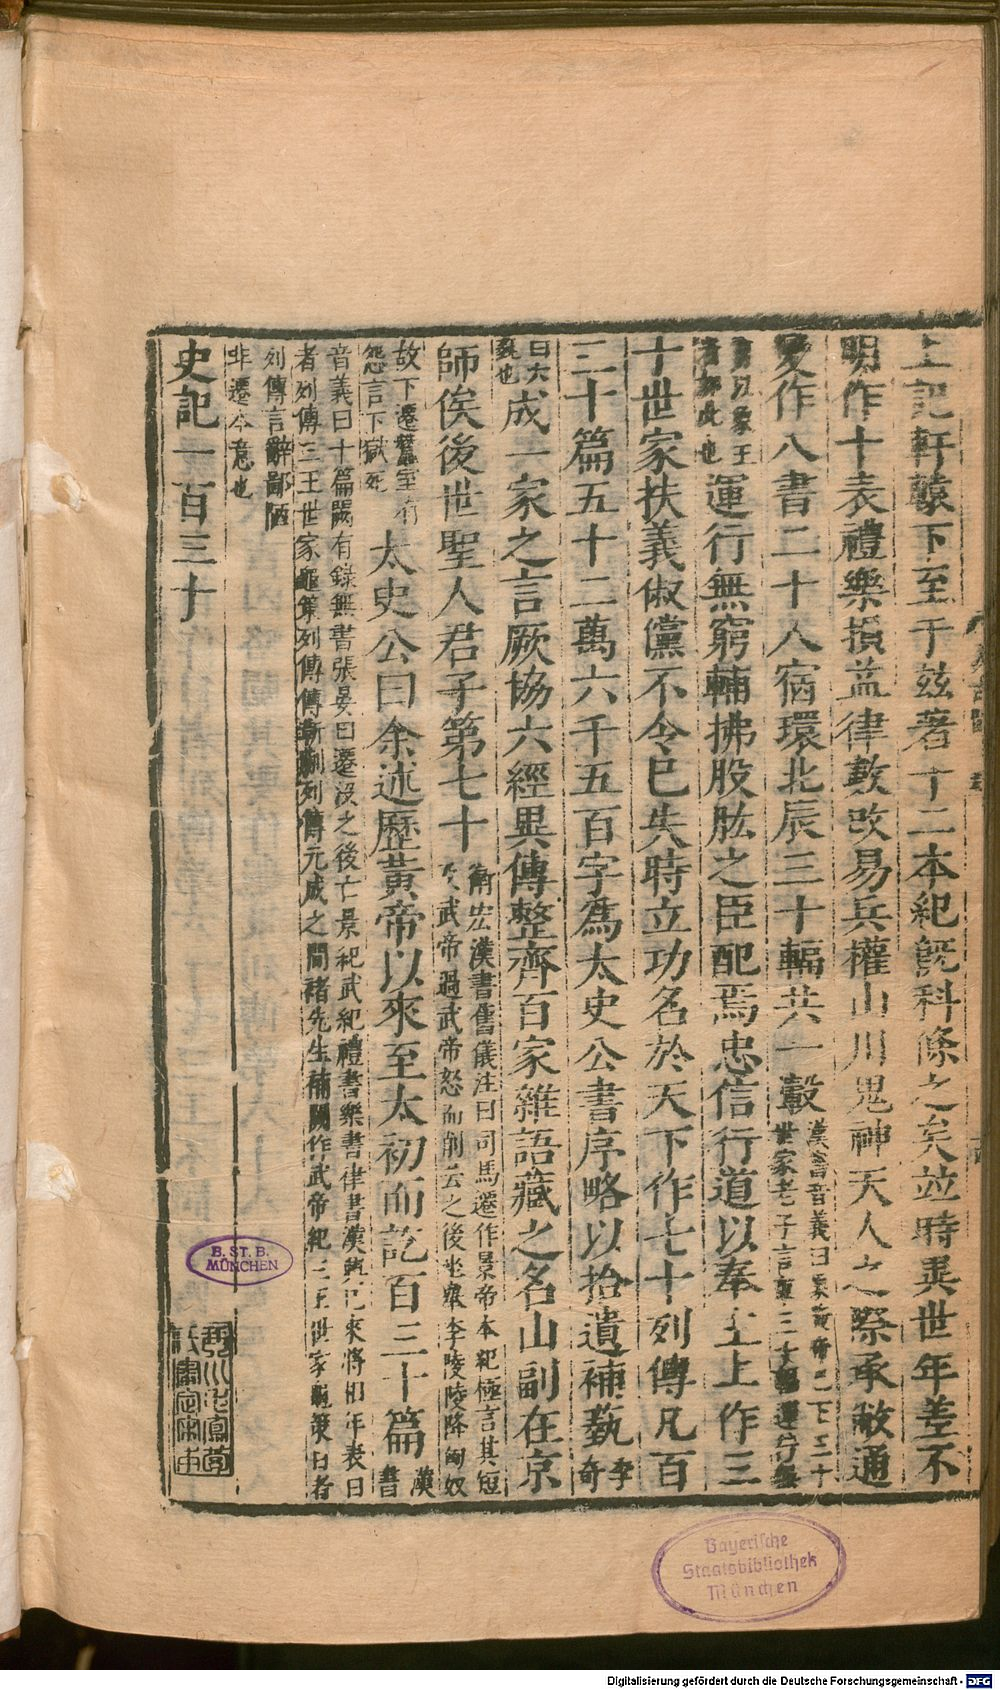 上記軒轅下至于兹著十二本紀旣科條之矣並時異世年差不
明作十表禮樂損益律歷改易兵權山川鬼神天人之際承敝通
變作八書二十八宿環北辰三十輻共一轂
漢書音義曰象黃帝已下三十
世家老子言車三十輻運行無
窮以象王
者如此也
運行無窮輔拂股肱之臣配焉忠信行道以奉主上作三
十世家扶義俶儻不令已失時立功名於天下作七十列傳凡百
三十篇五十二萬六千五百字爲太史公書序略以拾遺補蓺
李
奇
曰六
蓺也
成一家之言厥協六經異傳整齊百家雜語藏之名山副在京
師俟後世聖人君子第七十
衞宏漢書舊儀注曰司馬遷作景帝本紀極言其短
及武帝過武帝怒而削去之後坐舉李陵陵降匈奴
故下遷蠶室有
怨言下獄死
太史公曰余述歷黃帝以來至太初而訖百三十篇
漢
書
音義曰十篇闕有錄無書張晏曰遷没之後亡景紀武紀禮書樂書律書漢興已來將相年表日
者列傳三王世家龜策列傳傅靳蒯列傳元成之間褚先生補闕作武帝紀三王世家龜策日者
列傳言辭鄙陋
非遷本意也
史記一百三十
B. ST. B.
MÜNCHEN
Bayerische
Staatsbibliothek
München
Digitalisierung gefördert durch die Deutsche Forschungsgemeinschaft - DFG